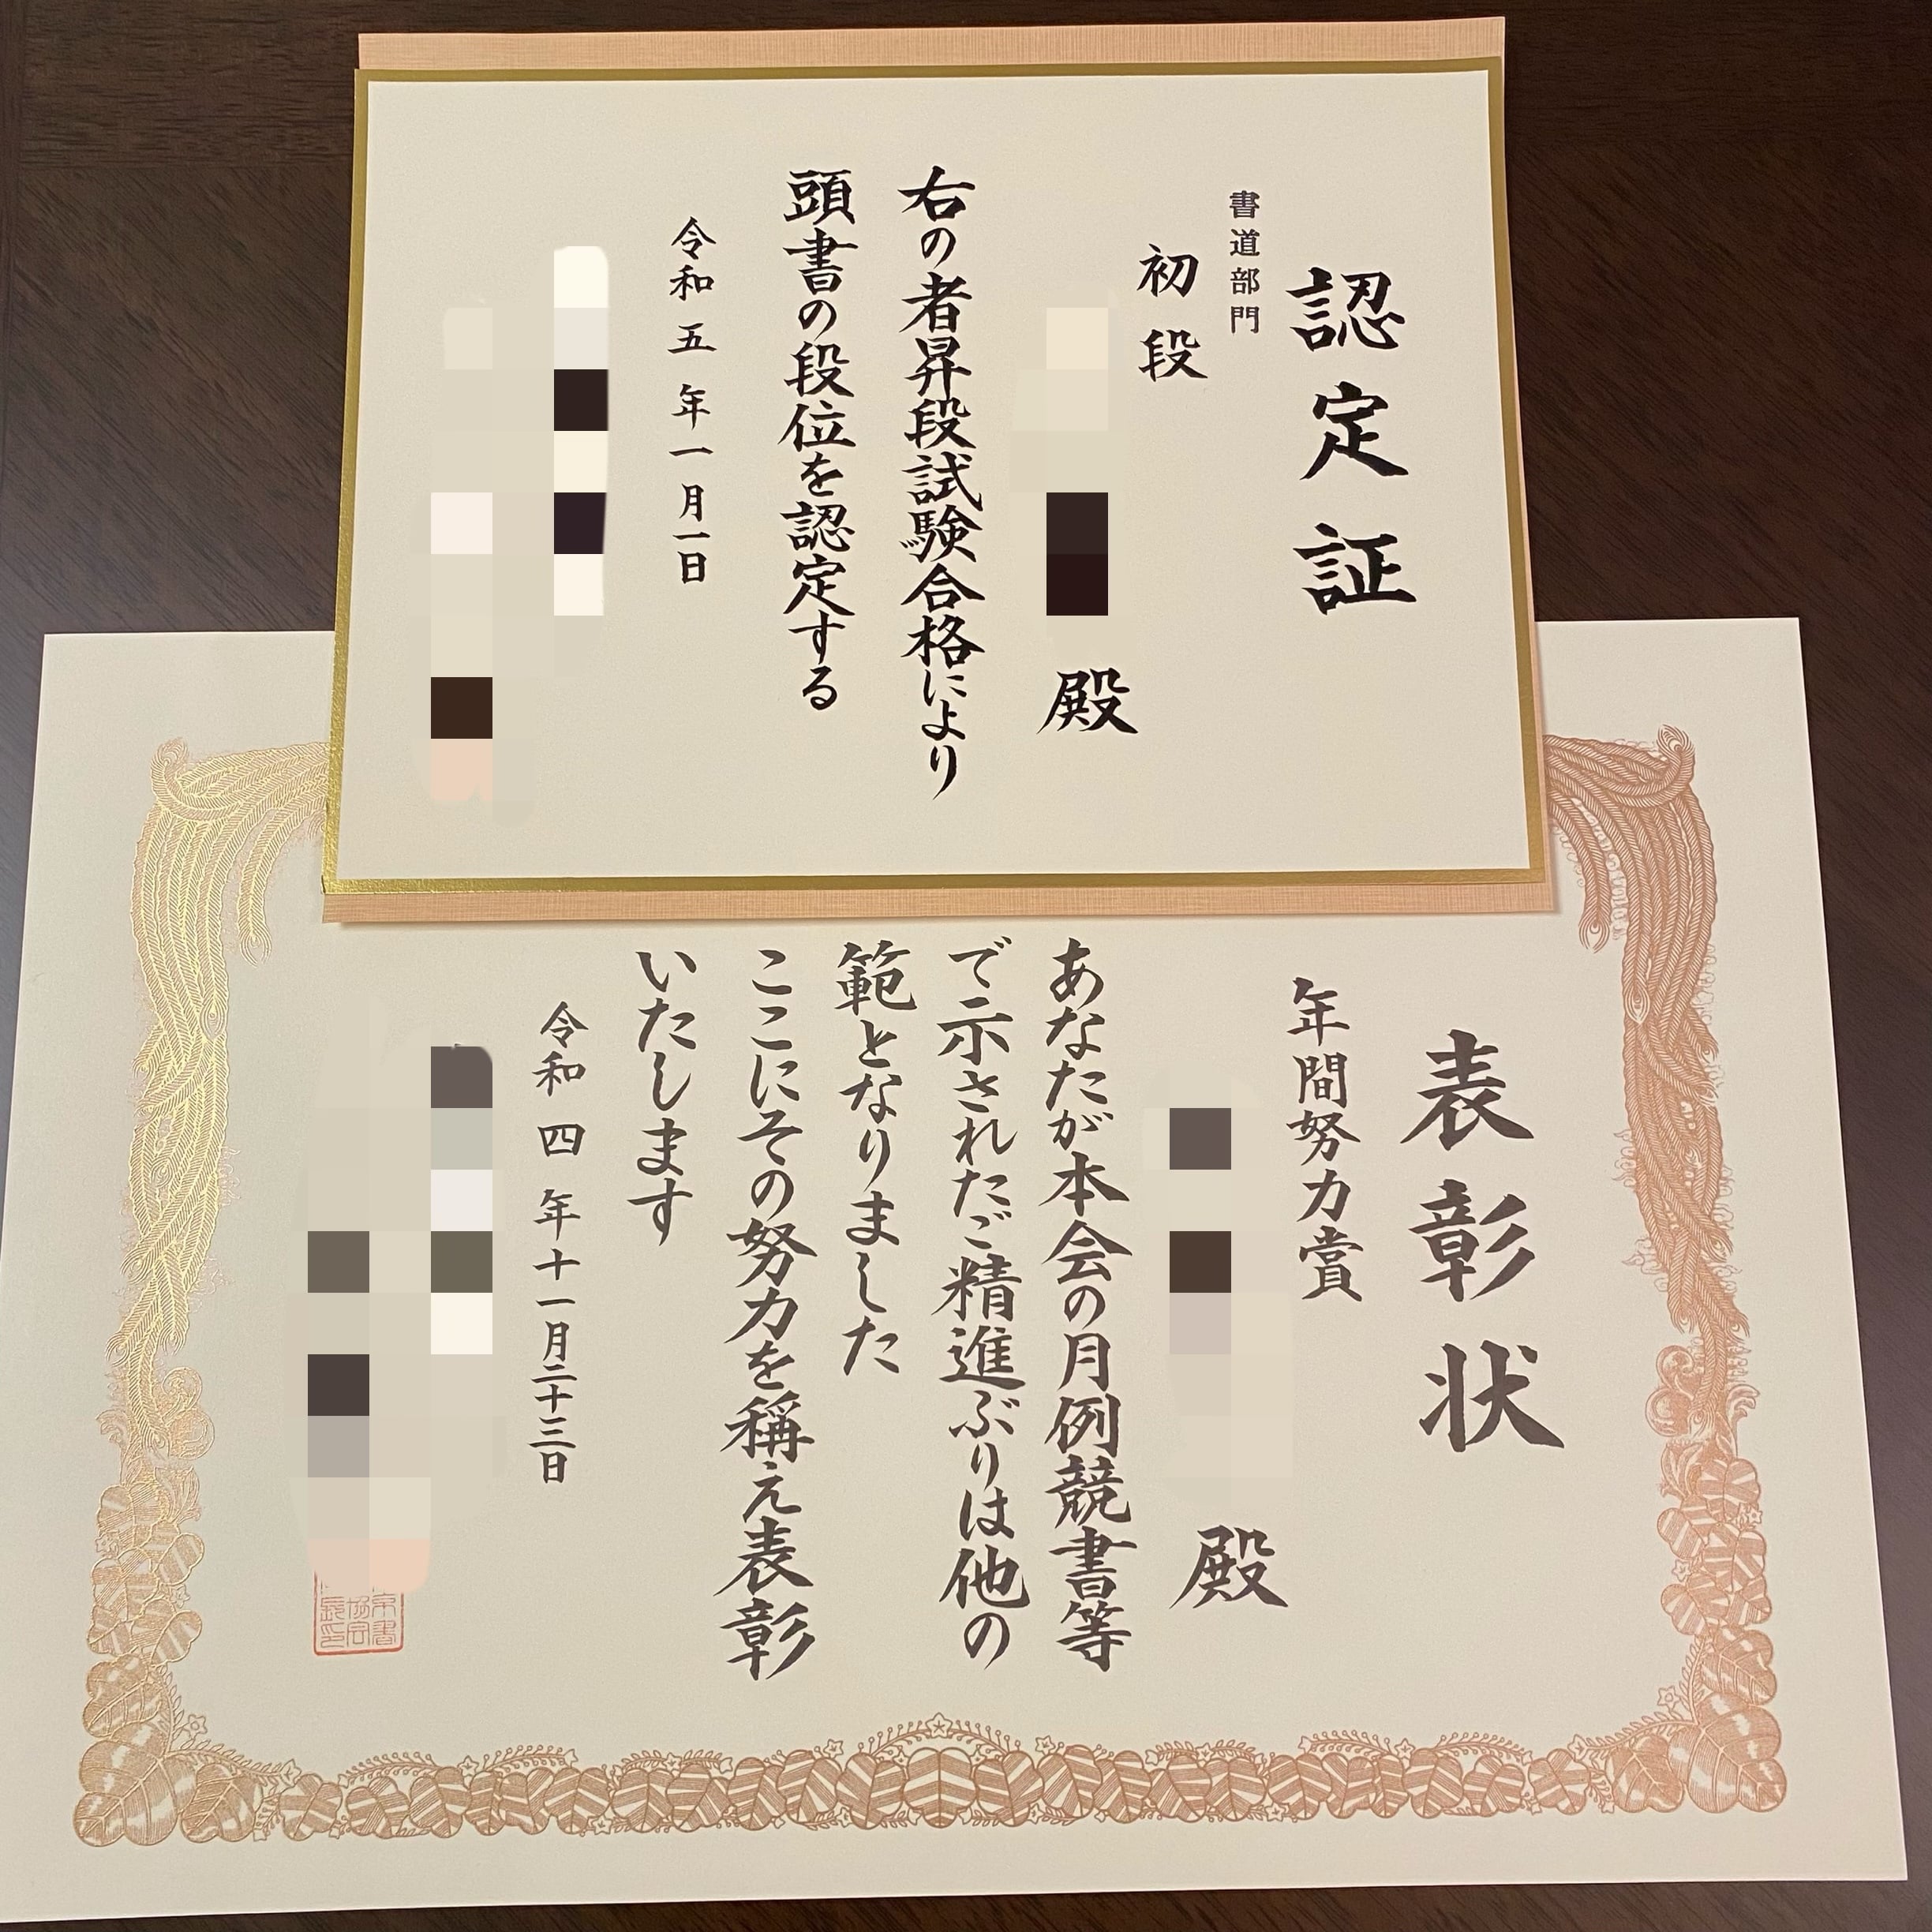 認定証
書道部門
初段
殿
右の者昇段試験合格により
頭書の段位を認定する
令和五年一月一日
表彰状
年間努力賞
殿
あなたが本会の月例競書等
で示されたご精進ぶりは他の
範となりました
ここにその努力を称え表彰
いたします
令和四年十一月二十三日